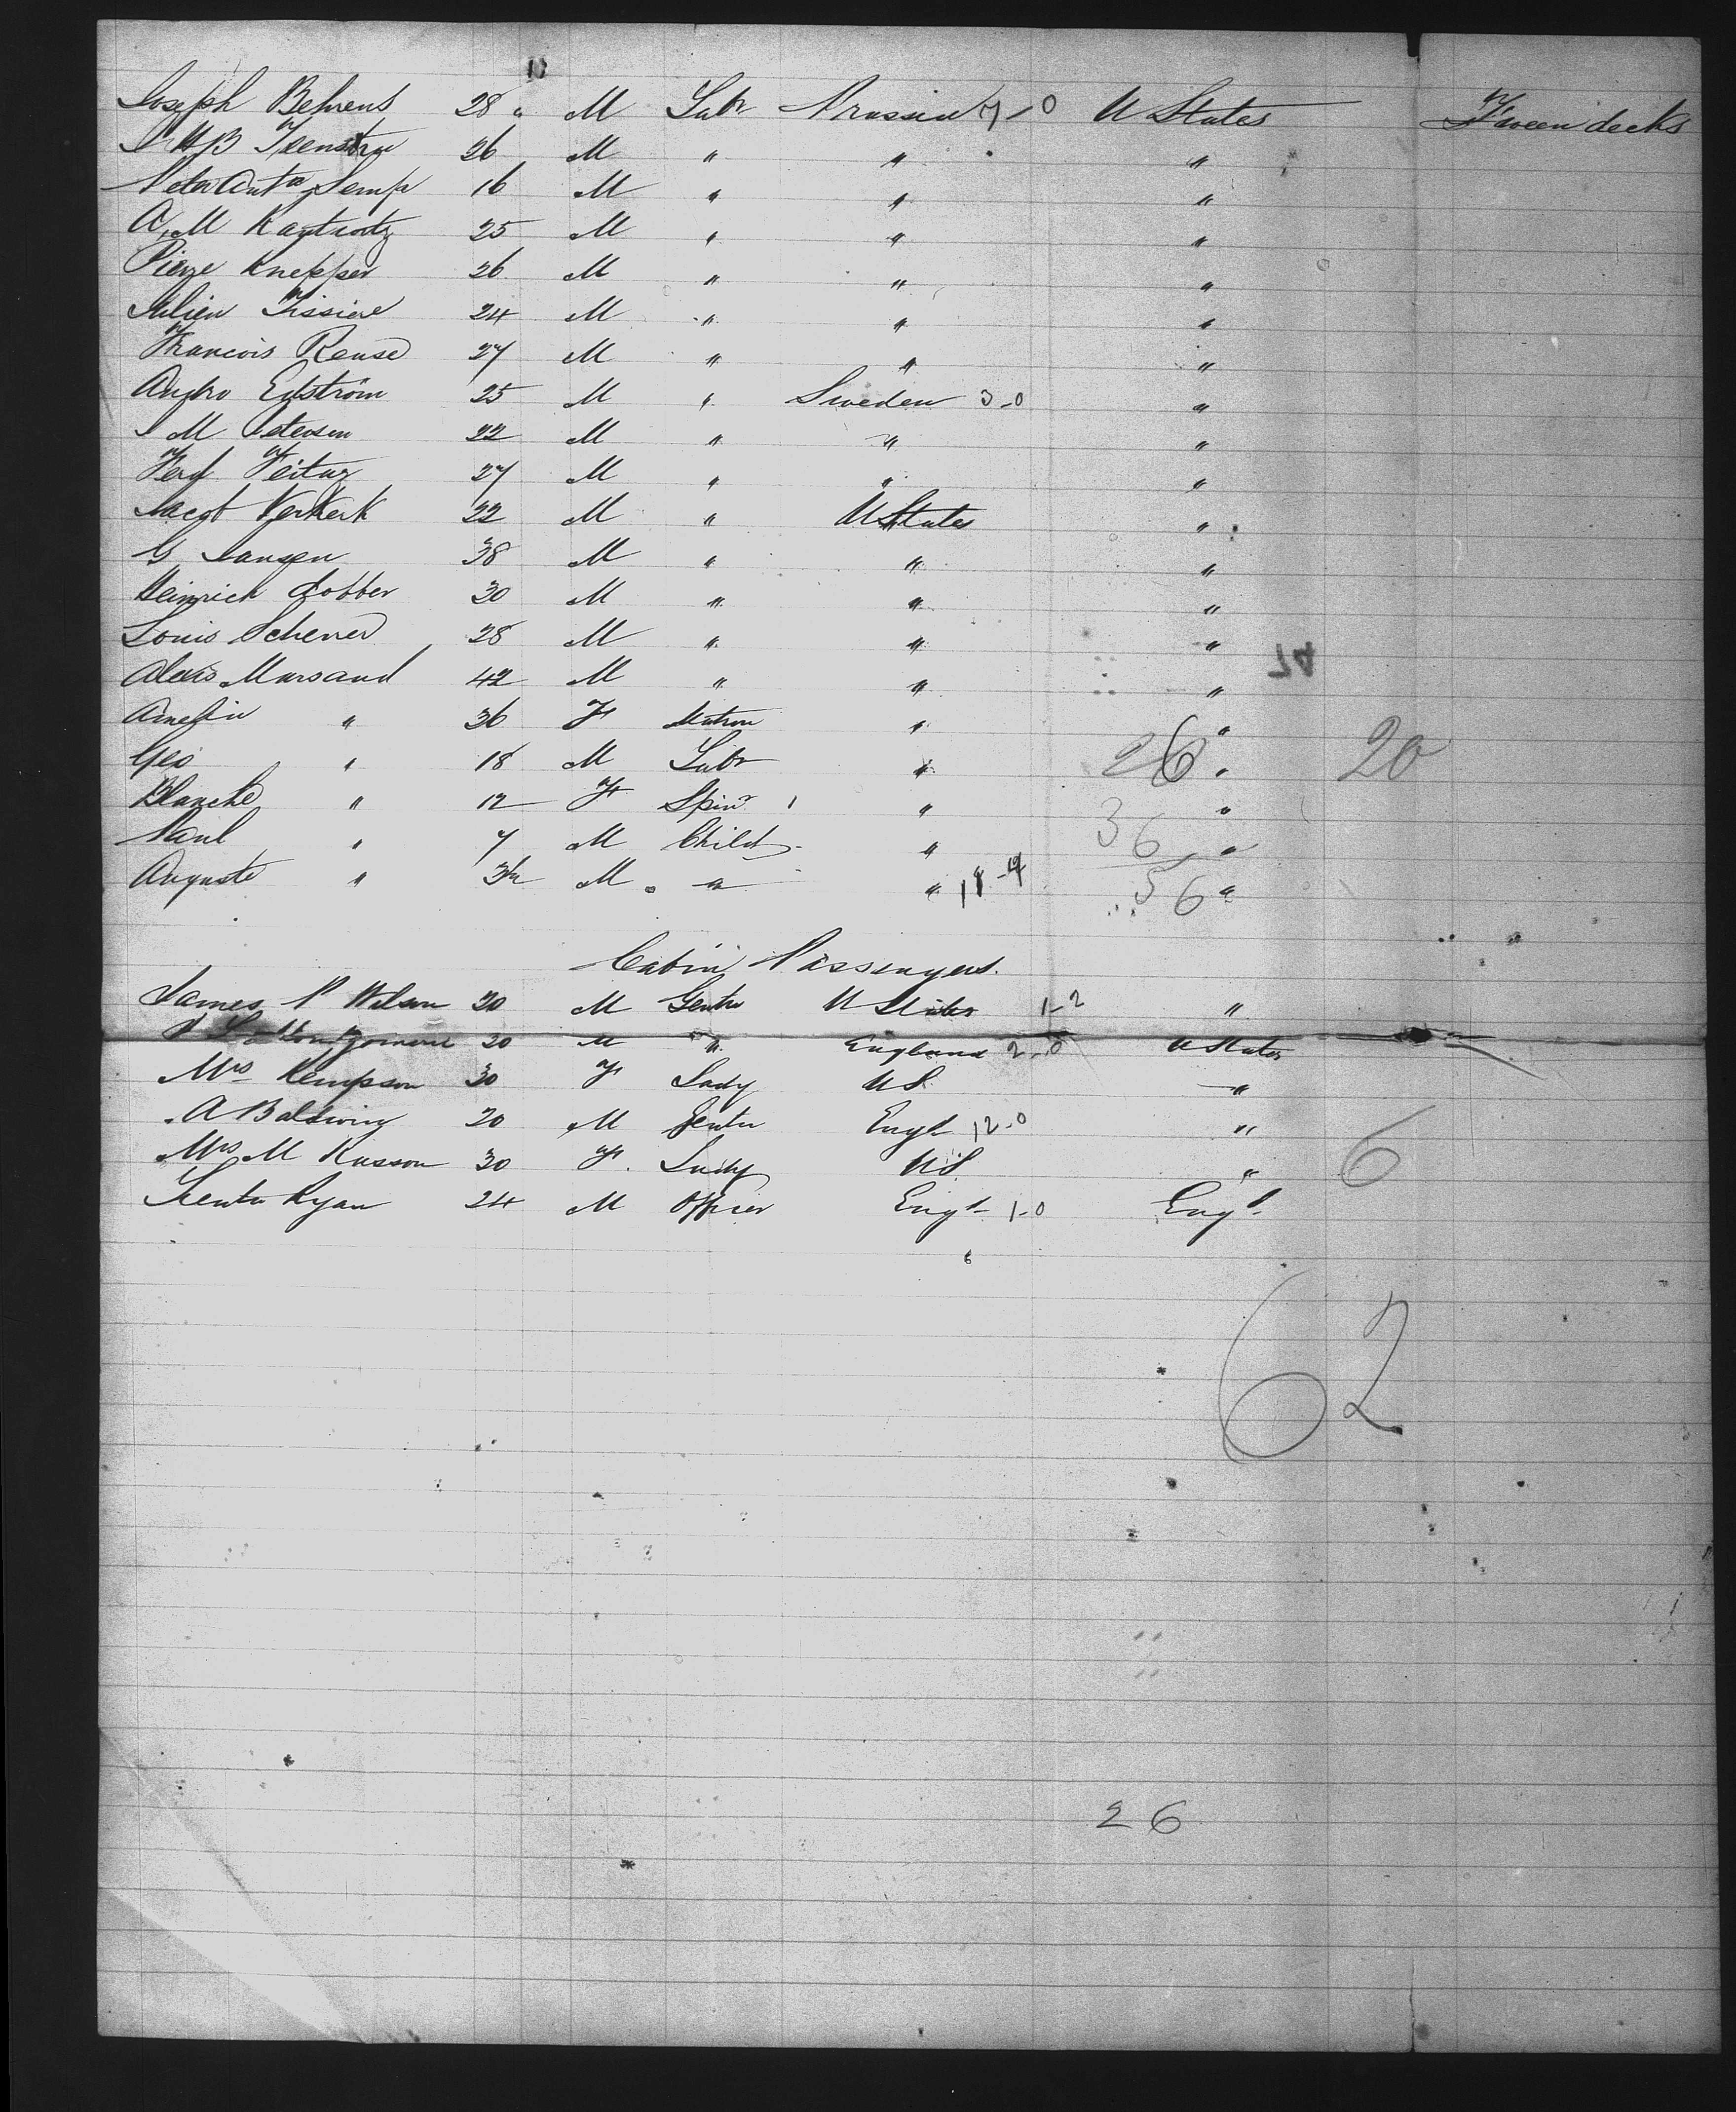 Joseph Behrens 28 " M Labr Prussia 7-0 U States Tween decks
26 M " " "
Peter Antn 16 M " " "
A. M 25 M " " "
Pierre Knepper 26 M " " "
Julien Tissiere 24 M " " "
Francois Reuse 27 M " " "
Edström 25 M " Sweden 3-0 "
M Petersen 22 M " " "
Ferd 27 M " " "
Jacob Verkerk 22 M " U States "
G Jansen 38 M " " "
Heinrich Lobber 30 M " " "
Louis Scherrer 28 M " " "
Alexis Marsand 42 M " " "
Amelia " 36 F Matron " "
Geo " 18 M Labr " 26 " 20
Blanche " 12 F Spinr " "
Paul " 7 M Child " 36 "
Auguste " M " " 56 "
Cabin Passengers.
James P Wilson 20 M Gentn U States 1-2 "
20 M " England 2-0 U States
Mrs Kempson 30 F Lady U S. "
A Baldwin 20 M Gentn Engd 12-0 "
Mrs M Kusson 30 F. Lady U S. " 6
Ryan 24 M Officer Engd 1-0 Engd
6
62
26